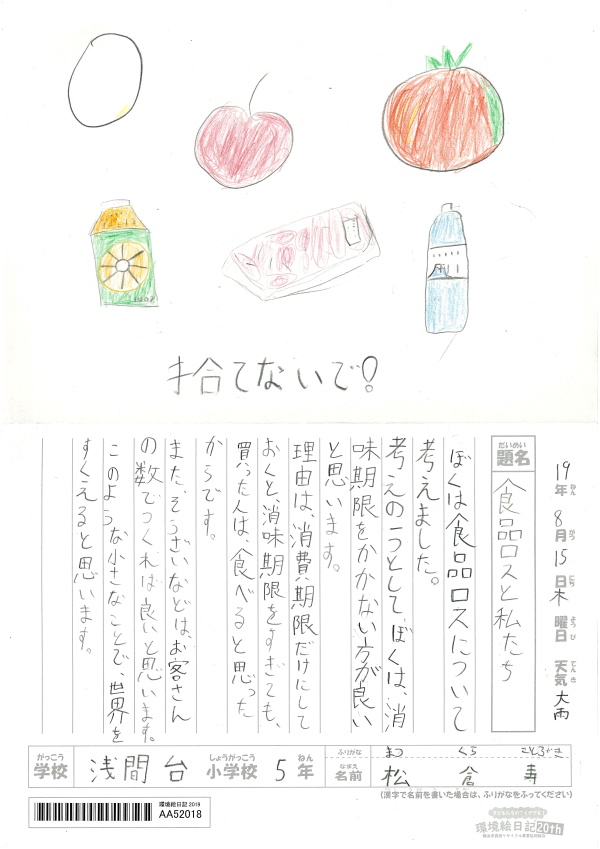 拾てないで!
19年 8月 15日 木曜日 天気 大雨
ねん がつ にち ようび てんき
だいめい
題名
食品ロスと私たち
ぼくは食品ロスについて
考えました。
考えの一つとして、ぼくは、消
味期限をかかない方が良い
と思います。
理由は、消費期限だけにして
おくと、消味期限をすぎても、
買った人は、食べると思った
からです。
また、そうざいなどは、お客さん
の数でつくれば良いと思います。
このような小さなことで、世界を
すくえると思います。
がっこう しょうがっこう ねん
学校 浅間台 小学校 5年
ふりがな まつ くら
なまえ
名前 松倉 寿
(漢字で名前を書いた場合は、ふりがなをふってください)
環境絵日記 2019
AA52018
環境絵日記20th